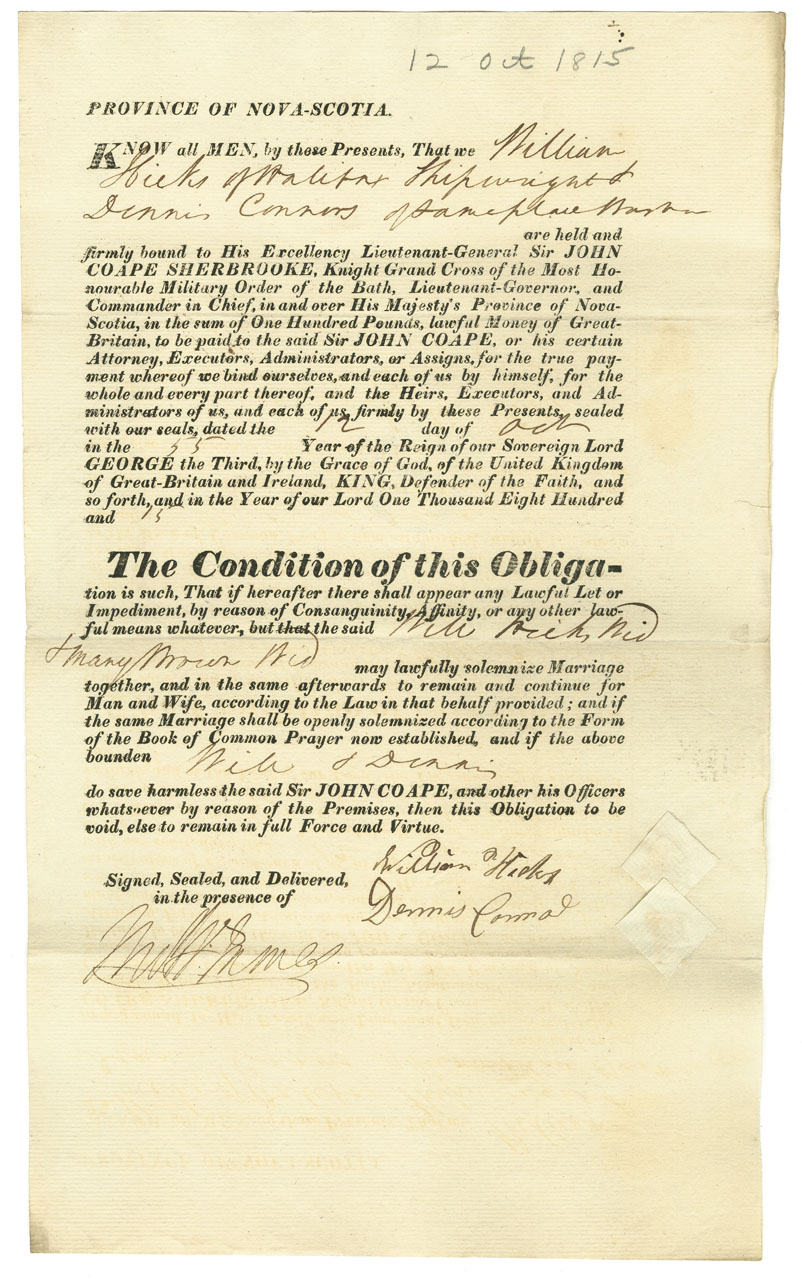 12 Oct 1815
PROVINCE OF NOVA-SCOTIA.
KNOW all MEN, by these Presents, That we William
Hicks of Halifax Shipwright &
Dennis Connors of same place
are held and
firmly bound to His Excellency Lieutenant-General Sir JOHN
COAPE SHERBROOKE, Knight Grand Cross of the Most Ho-
nourable Military Order of the Bath, Lieutenant-Governor, and
Commander in Chief, in and over His Majesty's Province of Nova-
Scotia, in the sum of One Hundred Pounds, lawful Money of Great-
Britain, to be paid to the said Sir JOHN COAPE, or his certain
Attorney, Executors, Administrators, or Assigns, for the true pay-
ment whereof we bind ourselves, and each of us by himself, for the
whole and every part thereof, and the Heirs, Executors, and Ad-
ministrators of us, and each of us, firmly by these Presents, sealed
with our seals, dated the 12 day of Oct
in the 55 Year of the Reign of our Sovereign Lord
GEORGE the Third, by the Grace of God, of the United Kingdom
of Great-Britain and Ireland, KING, Defender of the Faith, and
so forth, and in the Year of our Lord One Thousand Eight Hundred
and 15
The Condition of this Obliga-
tion is such, That if hereafter there shall appear any Lawful Let or
Impediment, by reason of Consanguinity, Affinity, or any other law-
ful means whatever, but that the said Will Hicks Wid
& Mary Brown Wid may lawfully solemnize Marriage
together, and in the same afterwards to remain and continue for
Man and Wife, according to the Law in that behalf provided; and if
the same Marriage shall be openly solemnized according to the Form
of the Book of Common Prayer now established, and if the above
bounden Will & Dennis
do save harmless the said Sir JOHN COAPE, and other his Officers
whatsoever by reason of the Premises, then this Obligation to be
void, else to remain in full Force and Virtue.
Signed, Sealed, and Delivered,
in the presence of
William Hicks
Dennis Connor